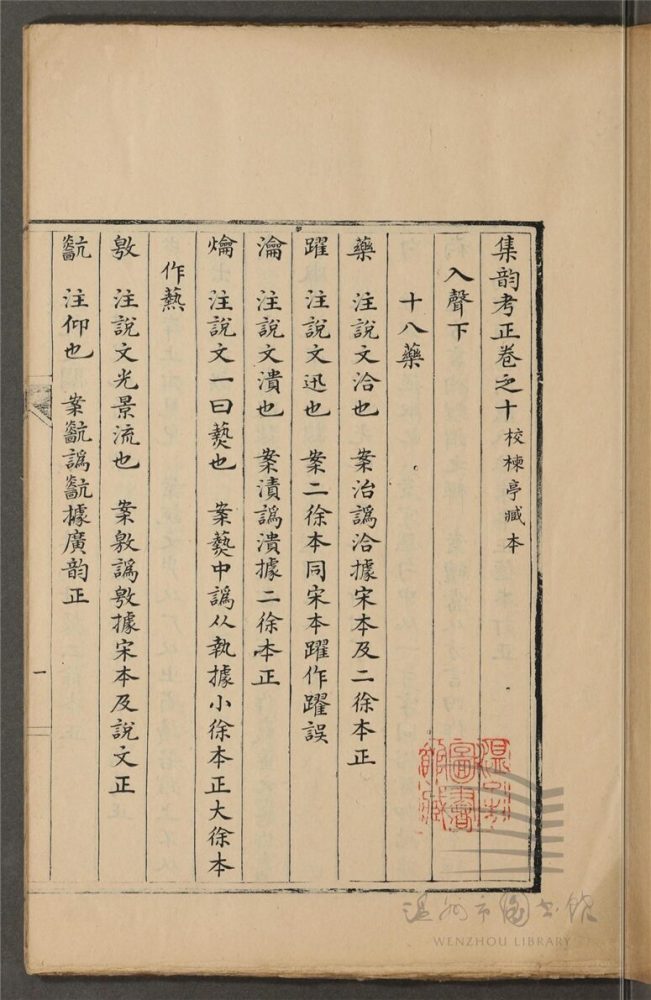 集韵考正卷之十 校棟亭臧本
入聲下
十八藥
藥 注說文治也 案治譌洽據宋本及二徐本正
躍 注說文迅也 案二徐本同宋本躍作躍誤
瀹 注說文漬也 案漬譌潰據二徐本正
爚 注說文一曰爇也 案爇中譌从執據小徐本正大徐本
作爇
敫 注說文光景流也 案敫譌敫據宋本及說文正
注仰也 案 譌 據廣韵正
一
溫州市圖書館藏
溫州市图书馆
WENZHOU LIBRARY